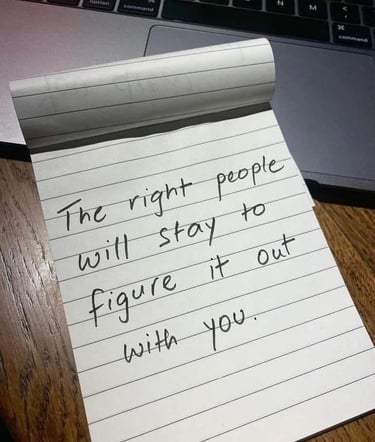 option
command
N
M
<
⌘
command
The right people
will stay to
figure it out
with you.